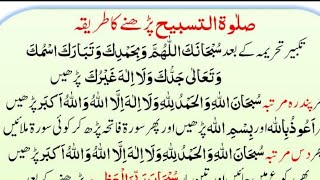 صلوٰۃ التسبیح پڑھنے کا طریقہ
تکبیر تحریمہ کے بعد سُبْحَانَكَ اللّٰهُمَّ وَبِحَمْدِكَ وَتَبَارَكَ اسْمُكَ
وَتَعَالٰى جَدُّكَ وَلَا اِلٰهَ غَيْرُكَ پڑھیں
پھر پندرہ مرتبہ سُبْحَانَ اللّٰهِ وَالْحَمْدُ لِلّٰهِ وَلَا اِلٰهَ اِلَّا اللّٰهُ وَاللّٰهُ اَكْبَر پڑھیں
پھر اَعُوْذُ بِاللّٰه اور بِسْمِ اللّٰه پڑھیں اور پھر سورۃ فاتحہ پڑھ کر کوئی سورۃ ملائیں
پھر دس مرتبہ سُبْحَانَ اللّٰهِ وَالْحَمْدُ لِلّٰهِ وَلَا اِلٰهَ اِلَّا اللّٰهُ وَاللّٰهُ اَكْبَر پڑھیں
پھر رکوع میں جائیں اور تین بار سُبْحَانَ رَبِّيَ الْعَظِيْم پڑھنے کے بعد